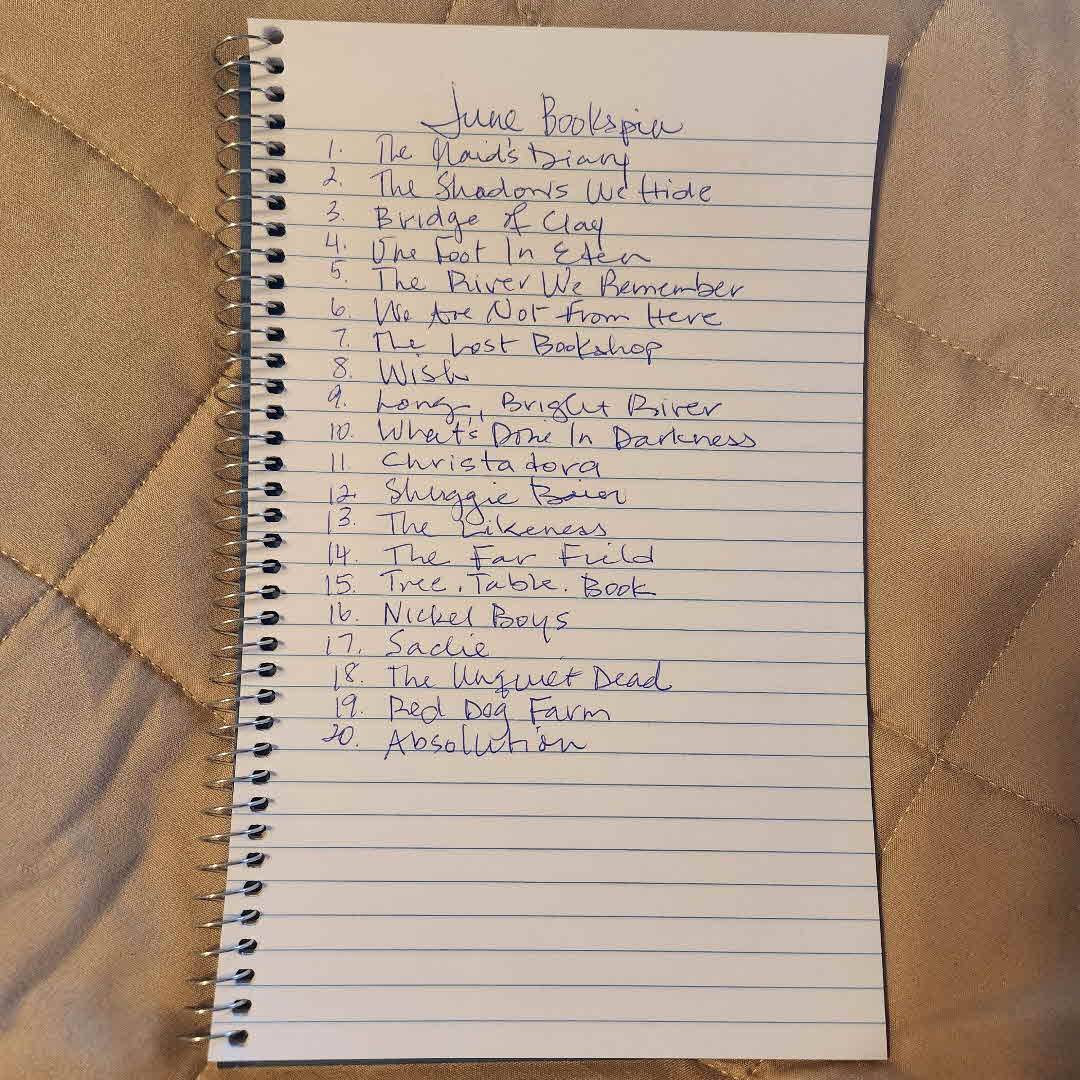 June Bookspin
1. The Maid's Diary
2. The Shadows We Hide
3. Bridge of Clay
4. One Foot In Eden
5. The River We Remember
6. We Are Not From Here
7. The Lost Bookshop
8. Wish
9. Long, Bright River
10. What's Done In Darkness
11. Christadora
12. Shuggie Bain
13. The Likeness
14. The Far Field
15. Tree. Table. Book
16. Nickel Boys
17. Sadie
18. The Unquiet Dead
19. Red Dog Farm
20. Absolution